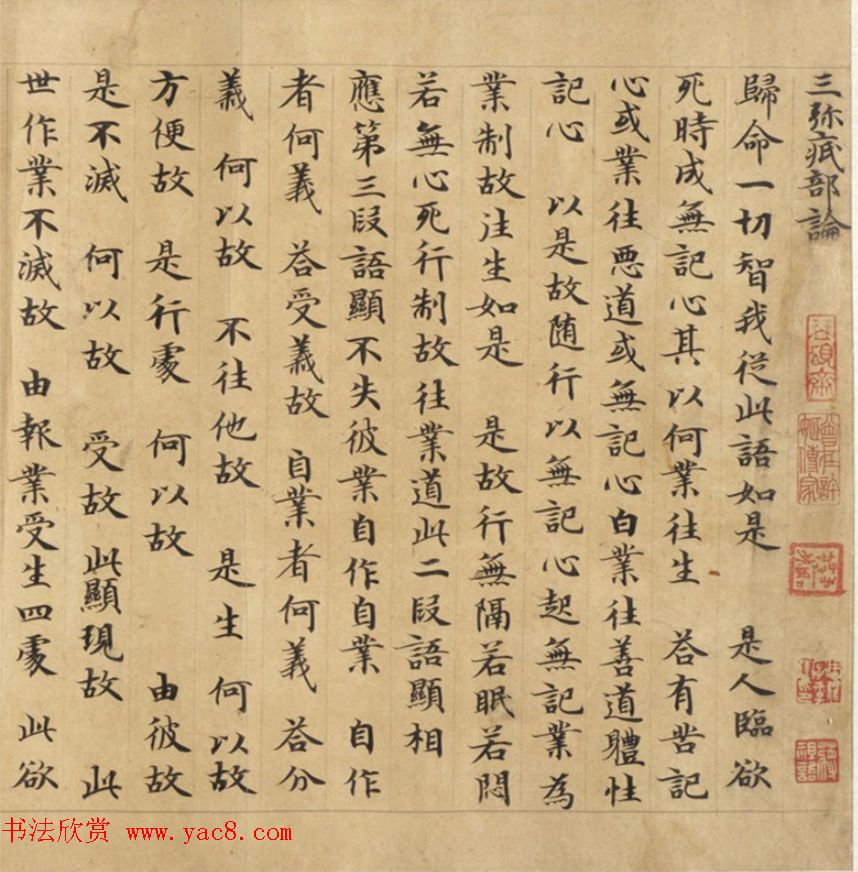 三弥底部論
歸命一切智我從此語如是 是人臨欲
死時成無記心其以何業往生 荅有苦記
心或業往悪道或無記心白業往善道體性
記心 以是故随行以無記心起無記業為
業制故注生如是 是故行無隔若眠若悶
若無心死行制故往業道此二段語顯相
應第三段語顯不失彼業自作自業 自作
者何義 荅受義故 自業者何義 荅分
義 何以故 不往他故 是生 何以故
方便故 是行處 何以故 由彼故
是不滅 何以故 受故此顯現故 此
世作業不滅故 由報業受生四處 此欲
书法欣赏 www.yac8.com